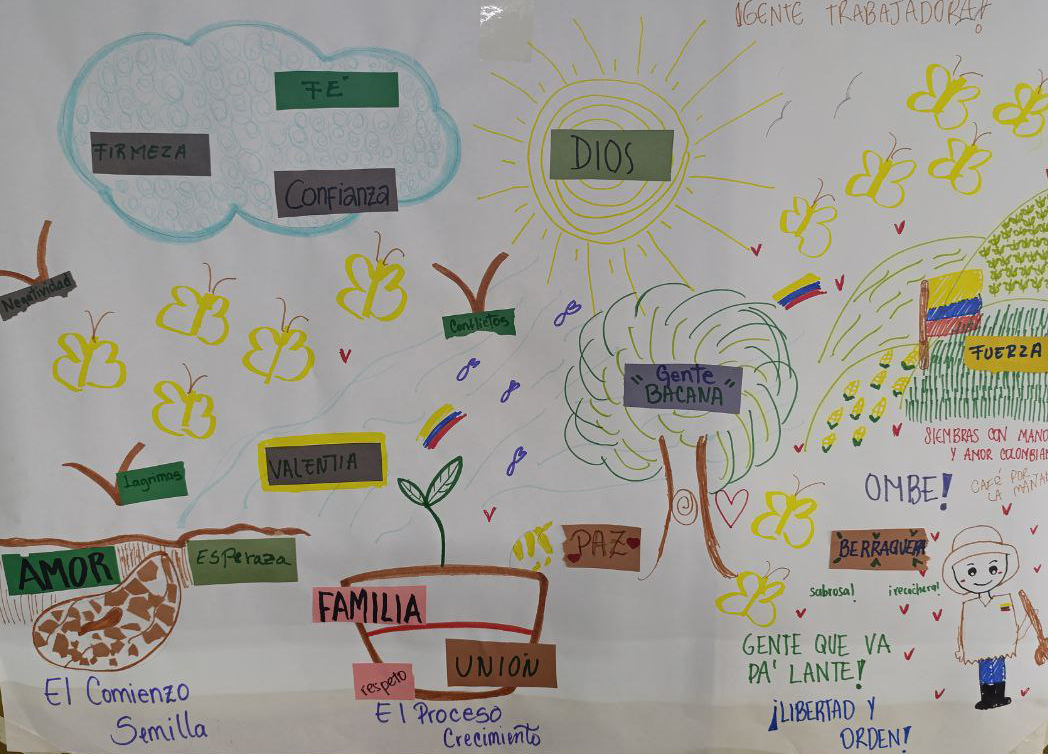 ¡GENTE TRABAJADORA!
FÉ
FIRMEZA
Confianza
DIOS
Negatividad
Conflictos
"Gente
BACANA"
FUERZA
VALENTIA
Lagrimas
SIEMBRAS CON MANO
Y AMOR COLOMBIAN
OMBE!
CAFÉ POR
LA MAÑAN
AMOR
ESPeraza
PAZ
BERRAQUERA
sabrosa!
¡recochera!
FAMILIA
UNION
respeto
GENTE QUE VA
PA' LANTE!
El Comienzo
Semilla
El Proceso
Crecimiento
¡LIBERTAD Y
ORDEN!